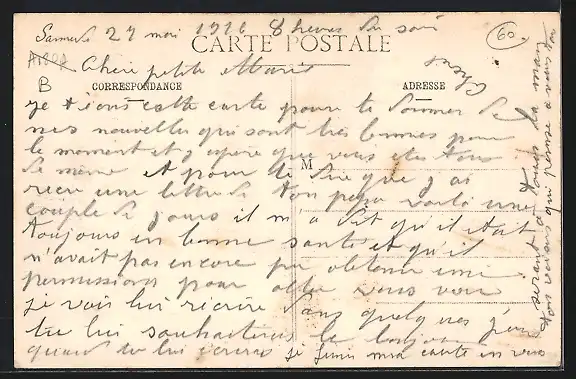 Samedi 27 mai 1916 8 heures du soir
CARTE POSTALE
60
Chère petite Marie
B
CORRESPONDANCE
ADRESSE
Je t'écris cette carte pour te donner de
mes nouvelles qui sont très bonnes pour
le moment et j'espère que vous etes tous
de même et pour te dire que j'ai
M
reçu une lettre de ton papa voilà une
couple de jours il m'a dit qu'il était
toujours en bonne santé et qu'il
n'avait pas encore pu obtenir une
permission pour aller vous voir
je vais lui récrire dans quelques jours
tu lui souhaiteras le bonjour
quand tu lui écriras je finis ma carte en vous
serrant à tous la main
ton voisin qui pense à vous tous